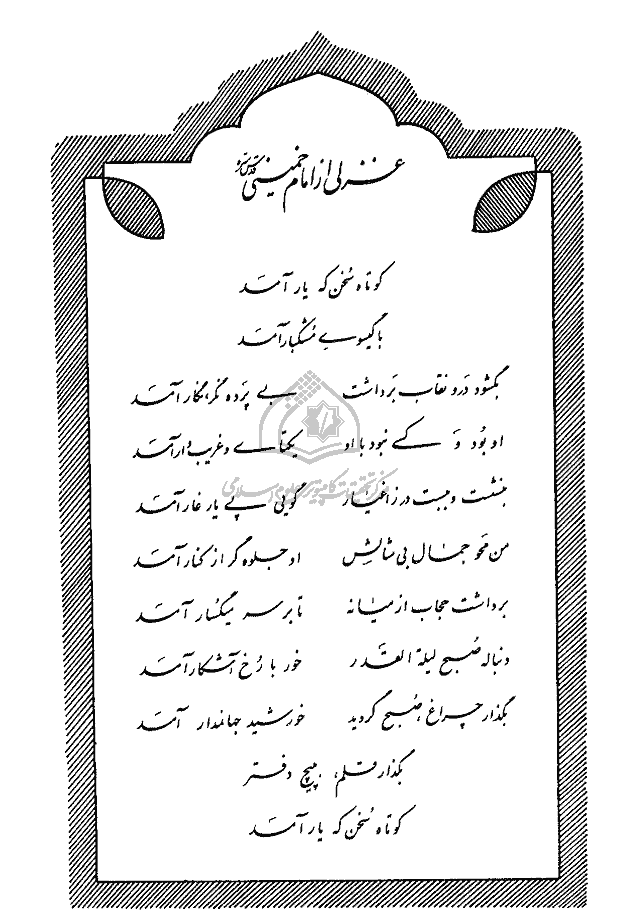 غزلی از امام خمینی قدس سره
کوتاه سخن که یار آمد
با گیسوے مشکبار آمد
بگشود در و نقاب برداشت بے پرده نگر نگار آمد
او بود و کسے نبود با او یکتاے و غریب وار آمد
بنشست و ببست در ز اغیار گویی پے یار غار آمد
من محو جمال بی مثالش او جلوه گر از کنار آمد
برداشت حجاب از میانه تا بر سر میگسار آمد
دنباله صبح لیلة القدر خور با رخ آشکار آمد
بگذار چراغ، صبح گردید خورشید جهانمدار آمد
بگذار قلم، بپیچ دفتر
کوتاه سخن که یار آمد
مرکز تحقیقات کامپیوتری علوم اسلامی